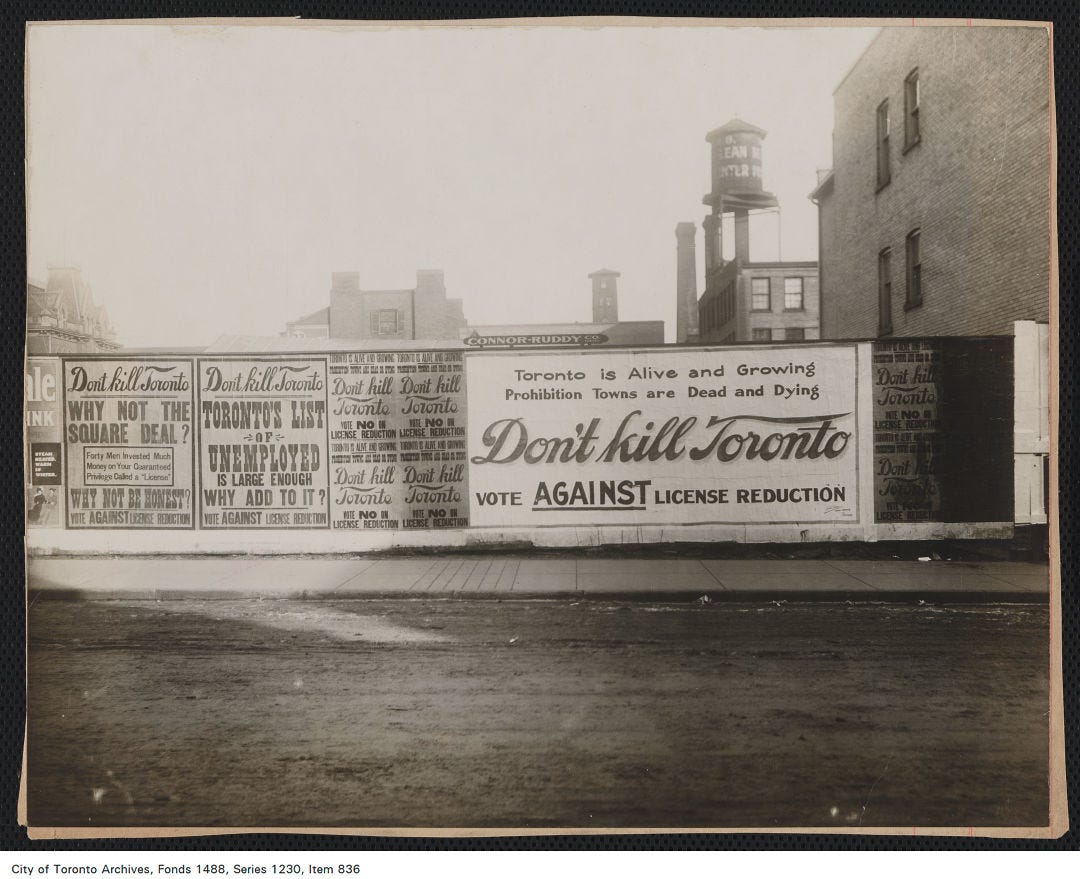 LEAN
CONNOR-RUDDY CO.
INK
Don't kill Toronto
WHY NOT THE
SQUARE DEAL?
Forty Men Invested Much
Money on Your Guaranteed
Privilege Called a "License"
WHY NOT BE HONEST?
VOTE AGAINST LICENSE REDUCTION
Don't kill Toronto
TORONTO'S LIST
OF
UNEMPLOYED
IS LARGE ENOUGH
WHY ADD TO IT?
VOTE AGAINST LICENSE REDUCTION
TORONTO IS ALIVE AND GROWING
PROHIBITION TOWNS ARE DEAD AND DYING
Don't kill
Toronto
VOTE NO ON
LICENSE REDUCTION
TORONTO IS ALIVE AND GROWING
PROHIBITION TOWNS ARE DEAD AND DYING
Don't kill
Toronto
VOTE NO ON
LICENSE REDUCTION
TORONTO IS ALIVE AND GROWING
PROHIBITION TOWNS ARE DEAD AND DYING
Don't kill
Toronto
VOTE NO ON
LICENSE REDUCTION
TORONTO IS ALIVE AND GROWING
PROHIBITION TOWNS ARE DEAD AND DYING
Don't kill
Toronto
VOTE NO ON
LICENSE REDUCTION
Toronto is Alive and Growing
Prohibition Towns are Dead and Dying
Don't kill Toronto
VOTE AGAINST LICENSE REDUCTION
Don't kill
Toronto
VOTE NO ON
LICENSE REDUCTION
Don't kill
Toronto
VOTE NO ON
LICENSE REDUCTION
City of Toronto Archives, Fonds 1488, Series 1230, Item 836